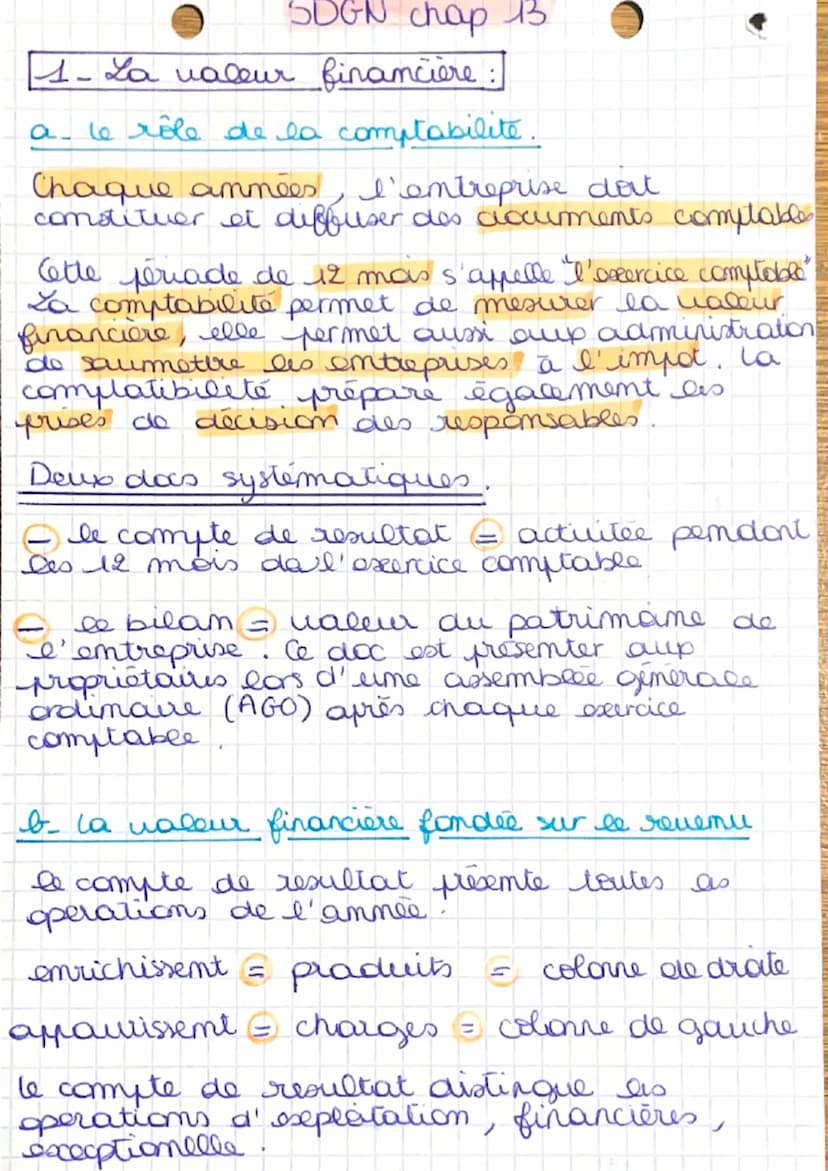 SDGN chap 13
1- La valeur financière :
a- le rôle de la comptabilité.
Chaque années, l'entreprise doit
constituer et diffuser des documents comptables
Cette période de 12 mois s'appelle "l'exercice comptable"
La comptabilité permet de mesurer la valeur
financière, elle permet aussi aux administration
de soumettre les entreprises à l'impot. La
complatibileté prépare également les
prises de décision des responsables.
Deux docs systématiques.
- le compte de resultat = activitée pendant
les 12 mois de l'exercice comptable
- le bilan = valeur du patrimoine de
l'entreprise. Ce doc est présenter aux
propriétaires lors d'une assemblée générale
ordinaire (AGO) après chaque exercice
comptable.
b- La valeur financière fondée sur le revenu
le compte de resultat présente toutes les
operations de l'année.
enrichissent = produits = colonne de droite
appauvrissent = charges = colonne de gauche
le compte de resultat distingue les
operations d'exploitation, financières,
exceptionelle.